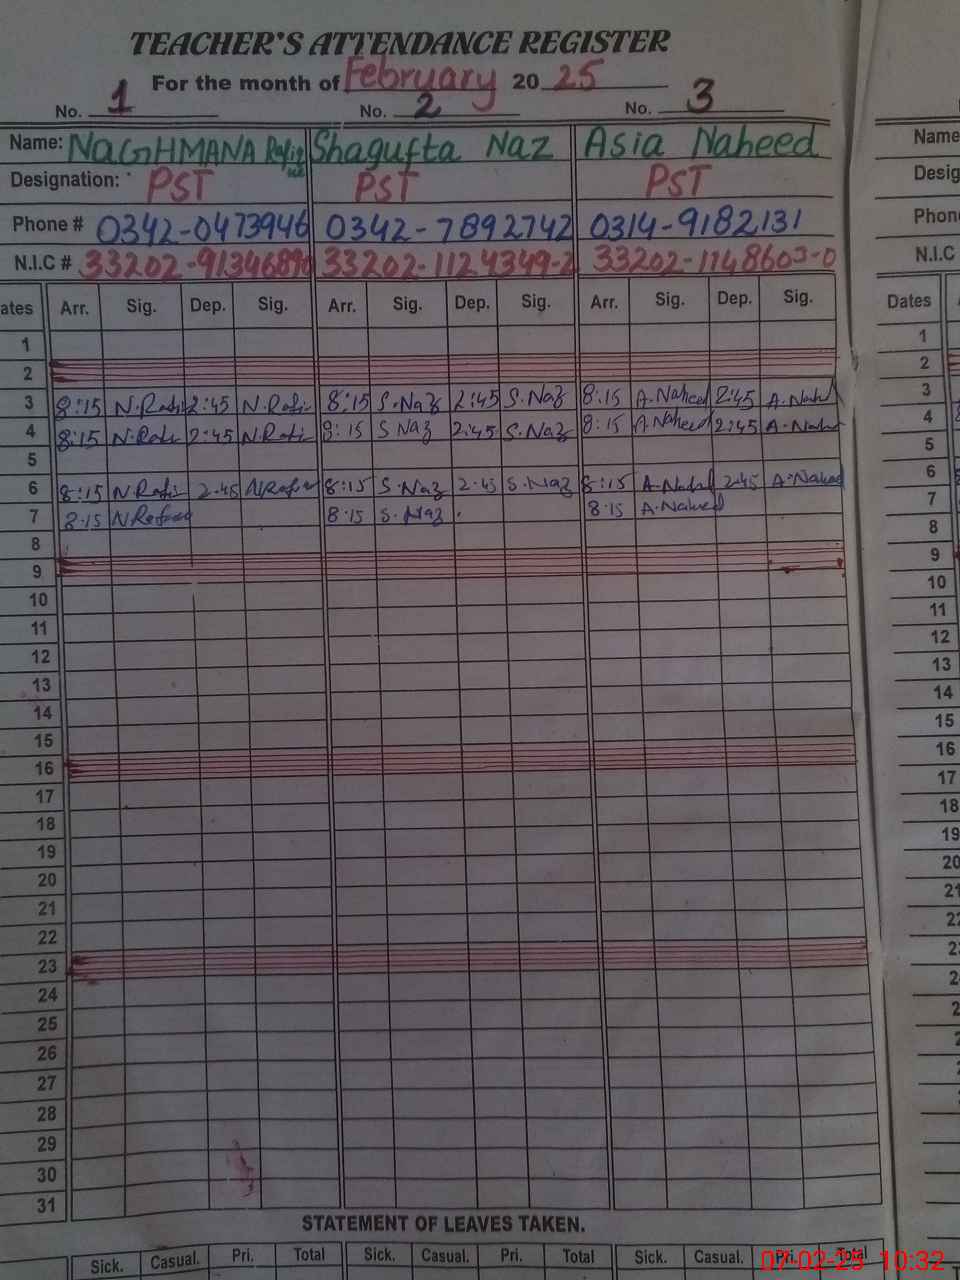 TEACHER'S ATTENDANCE REGISTER
For the month of February 2025
No. 1 No. 2 No. 3
Name: NAGHMANA Shagufta Naz Asia Naheed Name
Designation: PST PST PST Desig
Phone # 0342-0473946 0342-7892742 0314-9182131 Phon
N.I.C # 33202-9134689 33202-1124349-2 33202-1148603-0 N.I.C
ates Arr. Sig. Dep. Sig. Arr. Sig. Dep. Sig. Arr. Sig. Dep. Sig. Dates
1 1
2 2
3 8:15 N.Rafi 2:45 N.Rafi 8:15 S.Naz 2:45 S.Naz 8:15 A.Naheed 2:45 3
4 8:15 N.Rafi 2:45 N.Rafi 8:15 S Naz 2:45 S.Naz 8:15 A Naheed 2:45 4
5 5
6 8:15 N.Rafi 2.45 8:15 S.Naz 2:45 S.Naz 8:15 2:45 A.Naheed 6
7 8:15 8:15 S.Naz 8:15 A.Naheed 7
8 8
9 9
10 10
11 11
12 12
13 13
14 14
15 15
16 16
17 17
18 18
19 19
20 20
21 21
22 22
23
24
25
26
27
28
29
30
31
STATEMENT OF LEAVES TAKEN.
Sick. Casual. Pri. Total Sick. Casual. Pri. Total Sick. Casual. Pri. Total
07-02-25 10:32